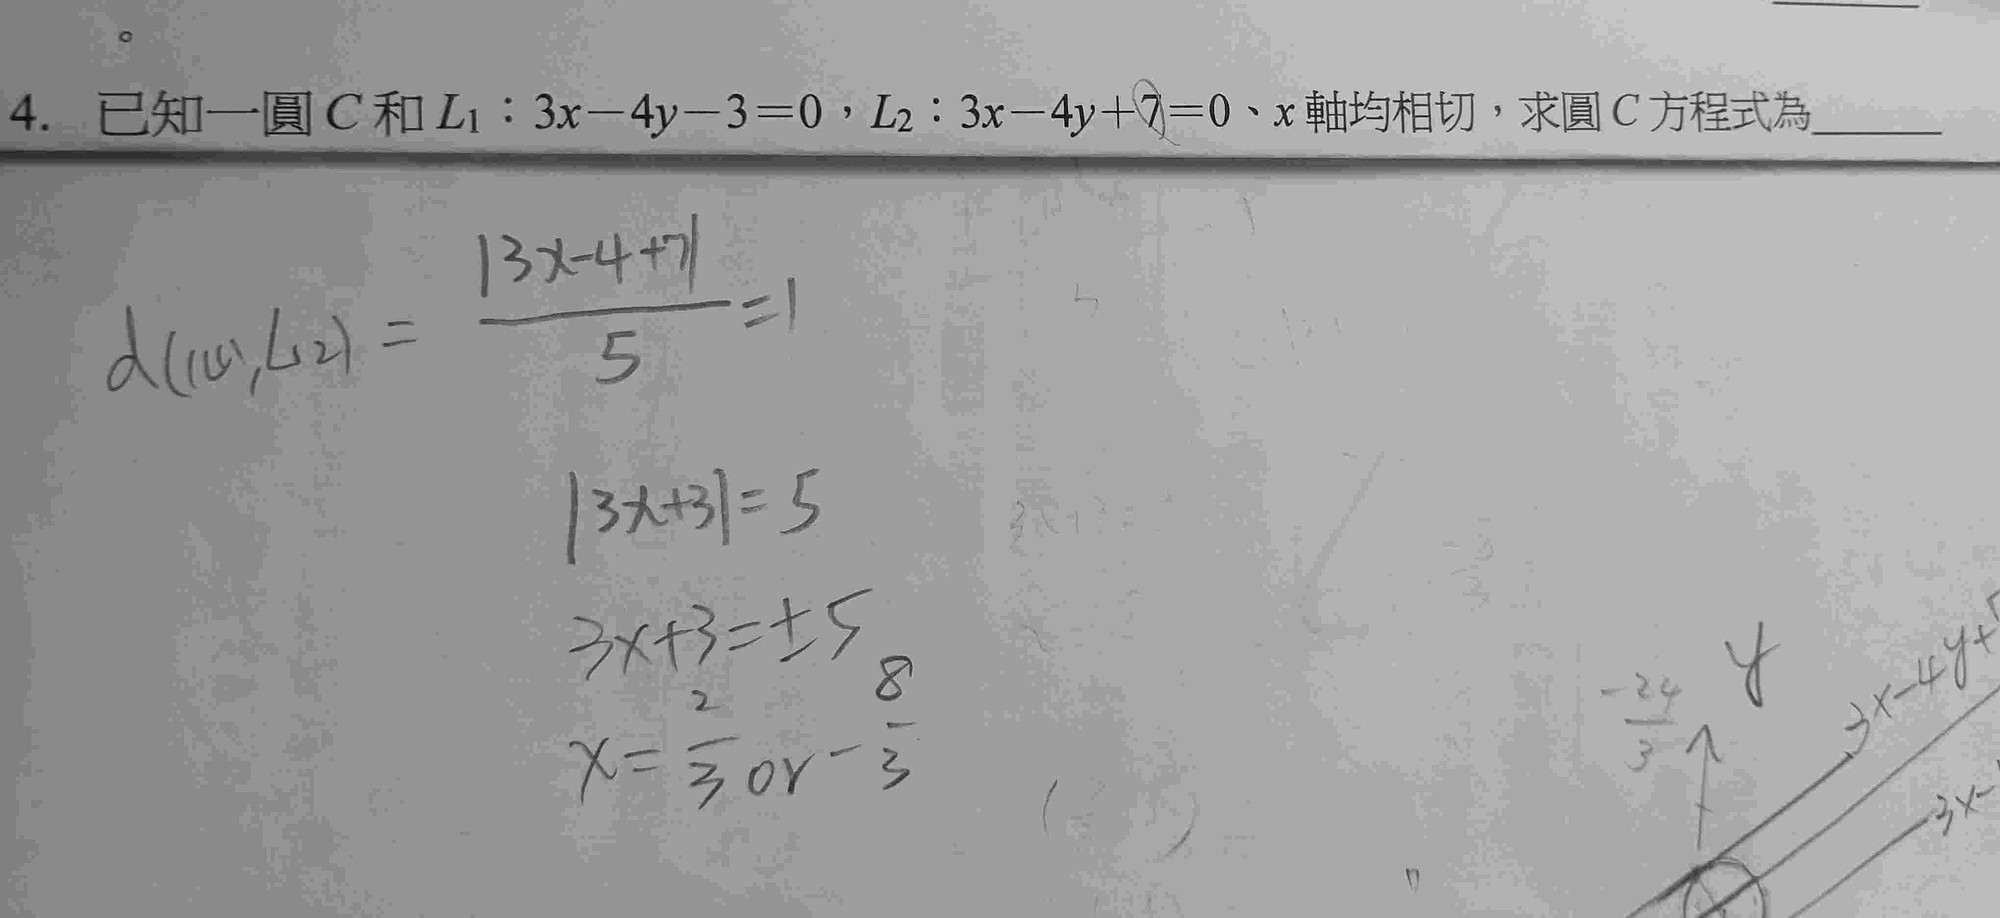 。
4. 已知一圓 C 和 L1：3x－4y－3＝0，L2：3x－4y＋7＝0、x 軸均相切，求圓 C 方程式為______
|3x-4+7|
d( , L2) = ——— =1
5
|3x+3|=5
3x+3=±5
x= 2/3 or - 8/3
-24/3
y
3x-4y+
3x-